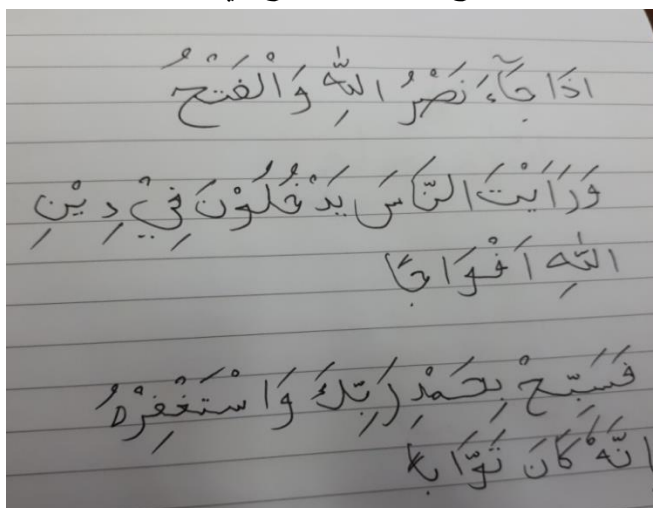 اذَا جَآءَ نَصْرُ اللّٰهِ وَالْفَتْحُ
وَرَاَيْتَ النَّاسَ يَدْخُلُوْنَ فِيْ دِيْنِ
اللّٰهِ اَفْوَاجًا
فَسَبِّحْ بِحَمْدِ رَبِّكَ وَاسْتَغْفِرْهُ
انَّهٗ كَانَ تَوَّابًا